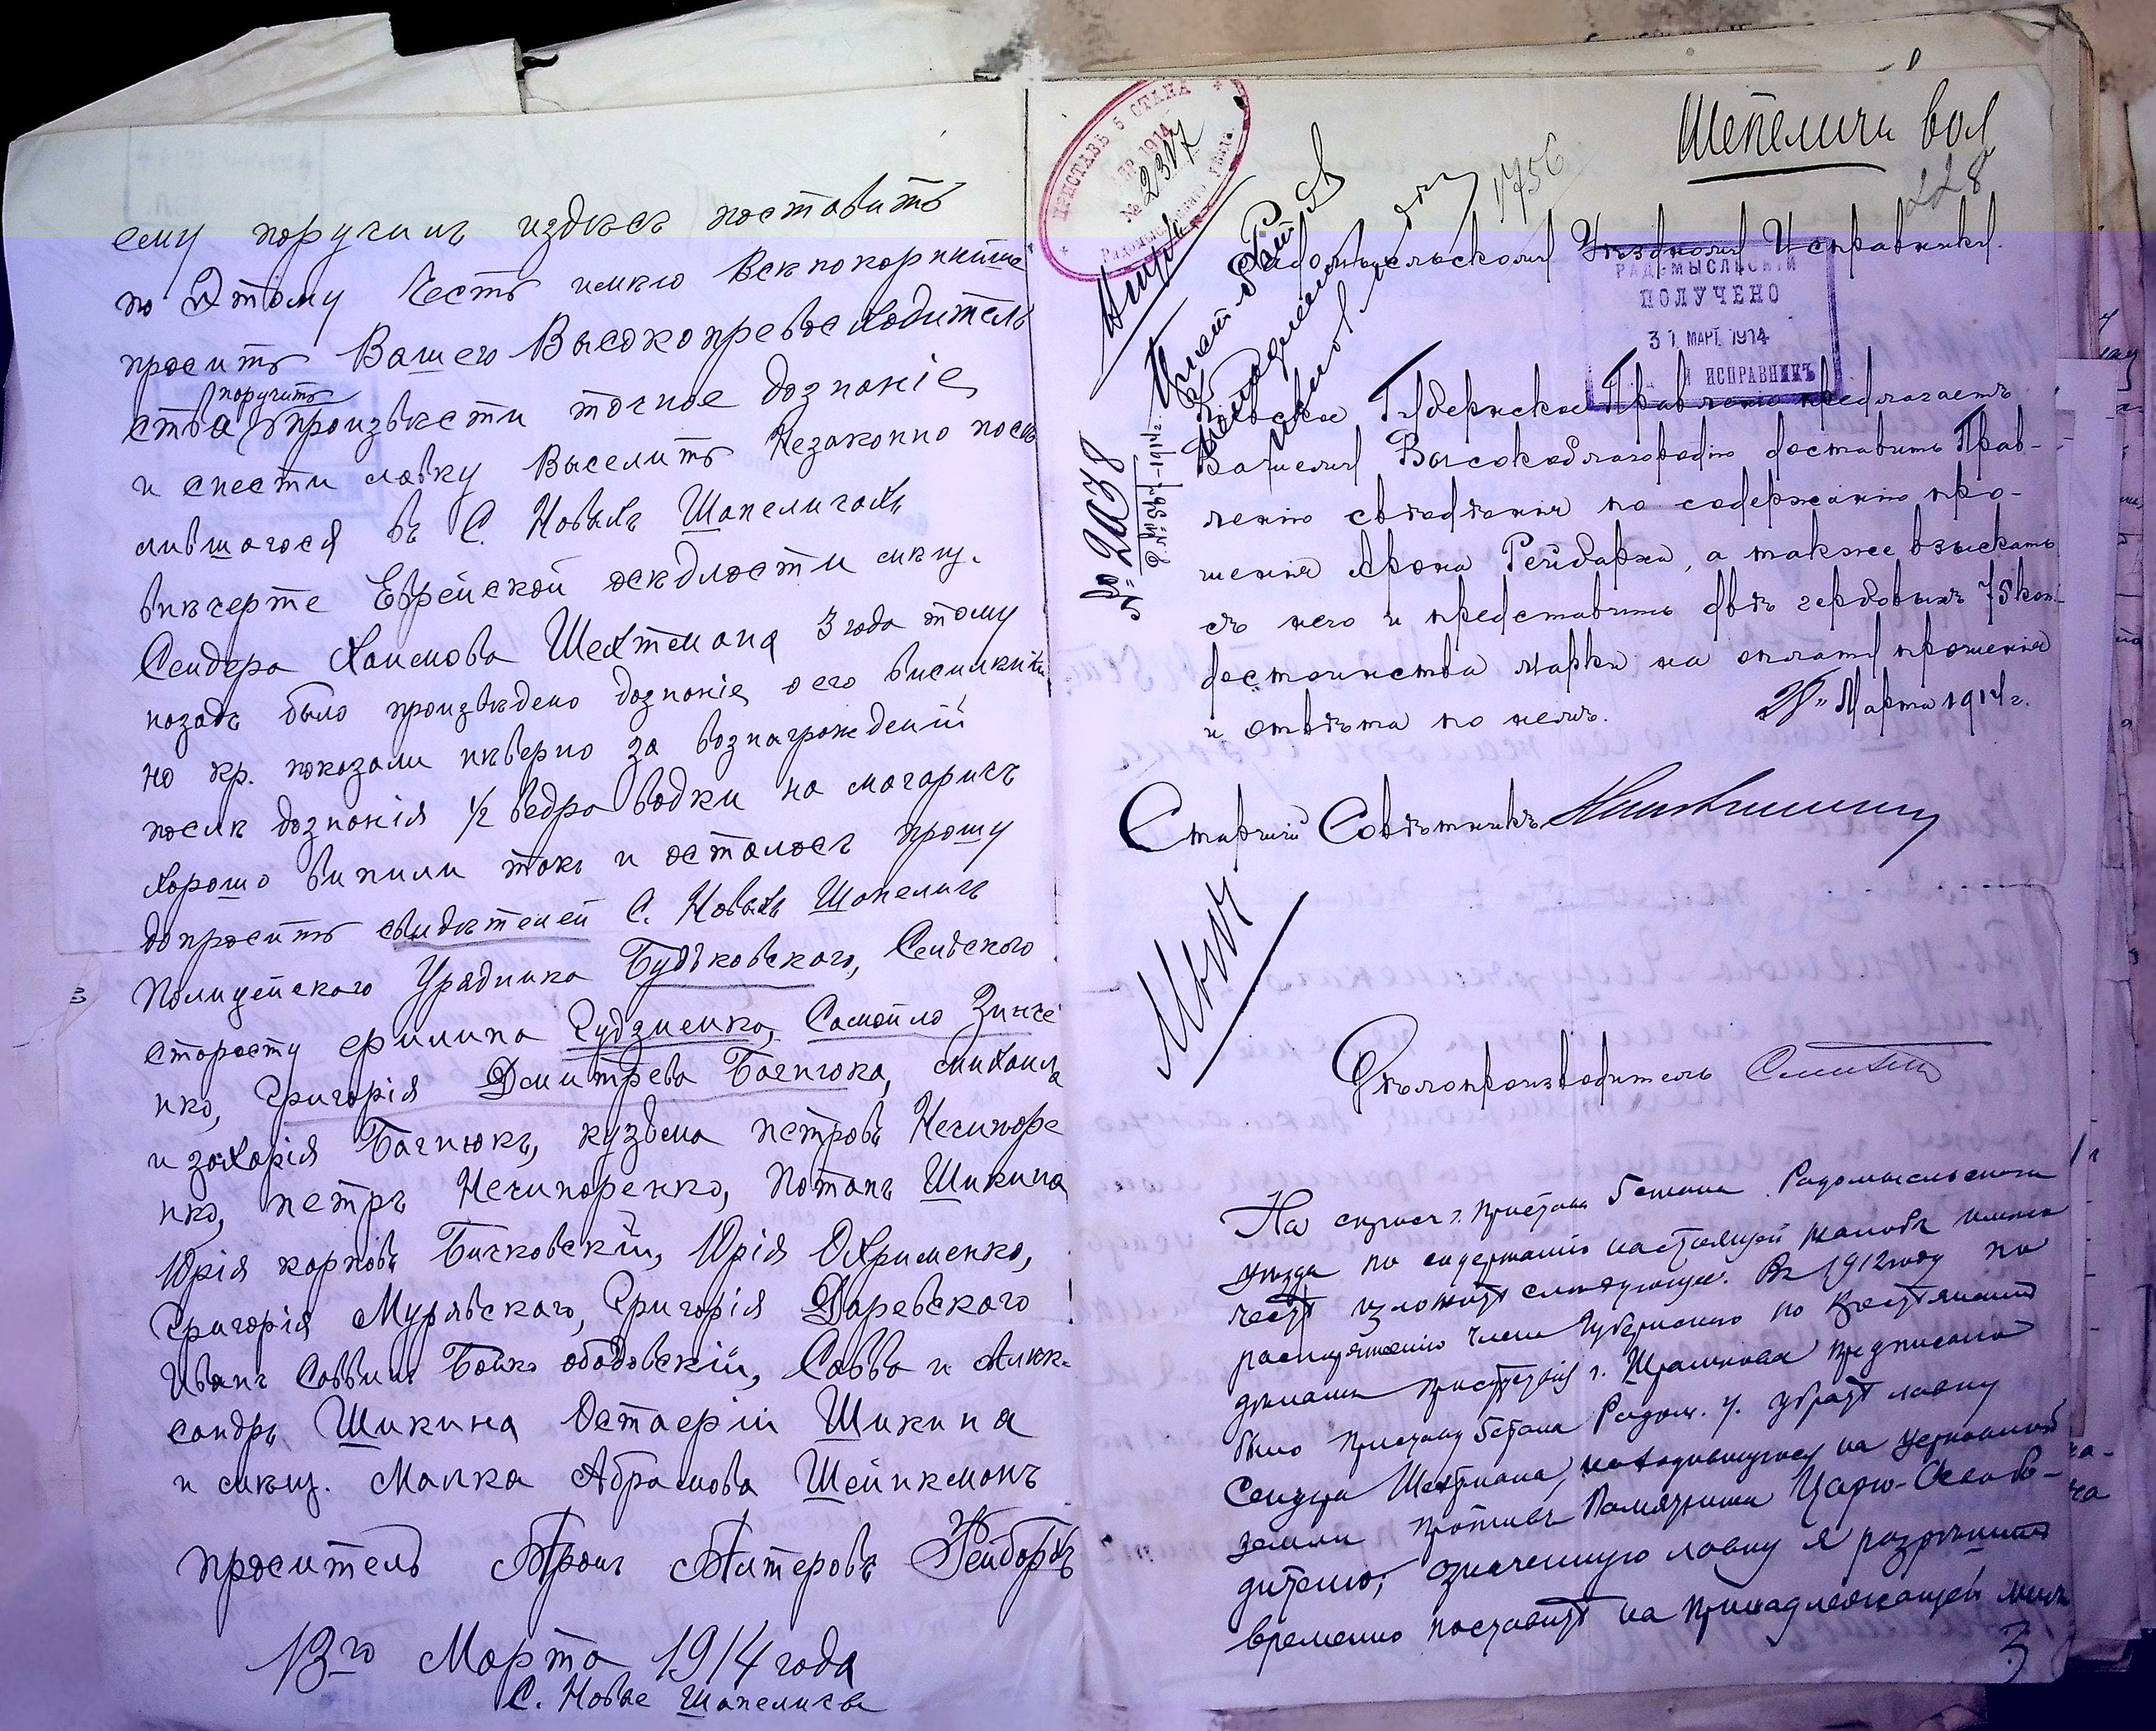 ему поручилъ издѣсь поставить
по Этому Честь имѣю Всѣпокорнѣйше
просить Вашего Высокопревосходитель
ства поручить произвѣсти точное дознаніе
и снести лавку Выселить Незаконно посѣ
лившагося въ С. Новыхъ Шапеличахъ
внѣчерте Еврейской осѣдлости мѣщ.
Сендера Хаимова Шехтмана 3 года тому
назадъ было произвѣдено дознаніе о его
но кр. показали нѣверно за вознагрожденій
послѣ дознанія 1/2 ведра водки на магаричъ
хорошо випили такъ и осталось прошу
допросить свидѣтелей С. Новыхъ Шапеличъ
Полицейского Урядника Будьковского, Сельского
старосту филипа Гудзиенко, Самойло Зинче
нко, Григорія Дмитрева Бачнюка, михаила
и захарія Бачнюкъ, кузьма петровъ Нечипоре
нко, петръ Нечипоренко, потапъ Шикина
Юрія карповъ Бичковскій, Юрія Охрименко,
Григорія Мурявского, Григорія Даревского
Иванъ Саввинъ Бойко ободовскій, Савва и Алек-
сандръ Шикина Остаерій Шикина
и мѣщ. Малка Абрамова Шейнкманъ
проситель Аронъ Алтеровъ Рейбархъ
13го Марта 1914 года
С. Новые Шапеличи
ПРИСТАВЪ 5 СТАНА
1914
№ 2317
Радомысльскаго уѣзда
1756
Шепеличи вол
228
Радомысльскому Уѣздному Исправнику.
РАДОМЫСЛЬСКІЙ
ПОЛУЧЕНО
31 МАРТ. 1914
ИСПРАВНИКЪ
№ 2038
Губернское Правленіе предлагаетъ
Вашему Высокоблагородію доставить Прав-
ленію свѣдѣнія по содержанію про-
шенія Арона Рейбарха, а также взыскать
съ него и представить двѣ гербовыхъ 75 коп.
достоинства марки на оплату прошенія
и отвѣта по нему. Марта 1914 г.
Старшій Совѣтникъ
Дѣлопроизводитель
На запросъ г. Пристава 5 стана Радомысльскаго
уѣзда по содержанію настоящей жалобы имѣю
честь изложить слѣдующее. Въ 1912 году по
распоряженію Члена Губернскаго по Крестьянскимъ
дѣламъ присутствія г.
было Приставу 5 стана Радом. у. убрать лавку
Сендера Шехтмана, находившуюся на церковной
земли противъ Памятника Царю-Освобо-
дителю, означенную лавку я разрѣшилъ
временно поставить на принадлежащей мнѣ
3